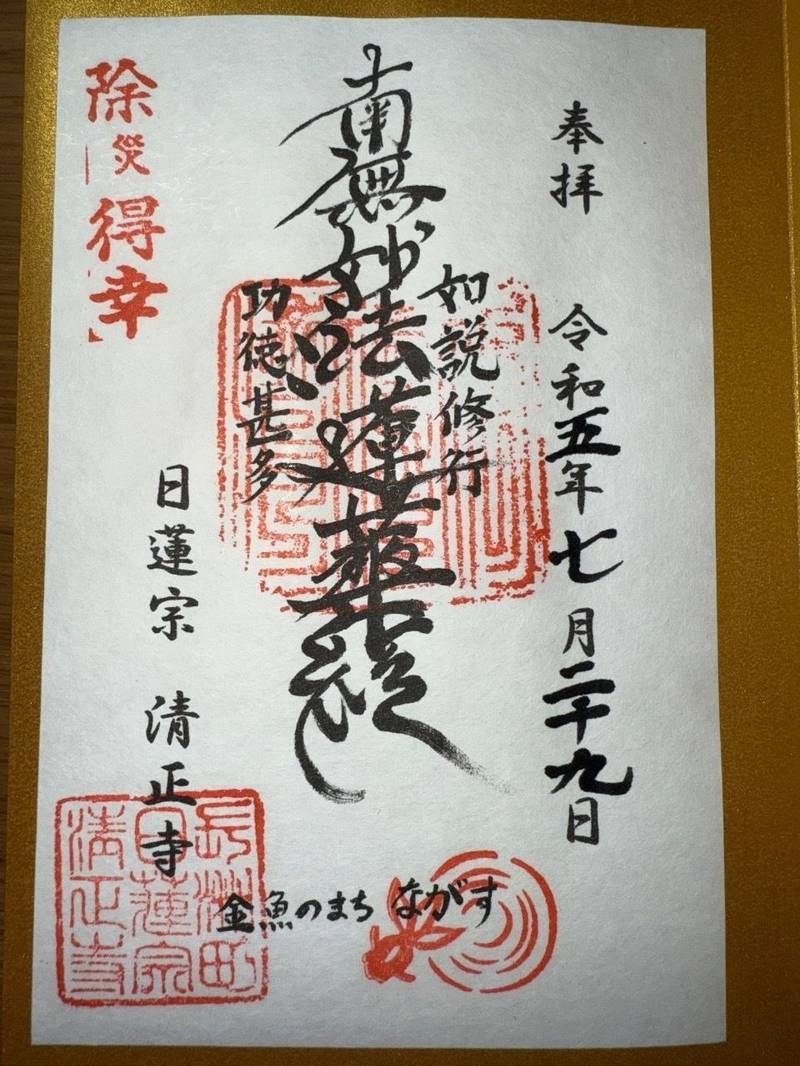 奉拝 令和五年七月二十九日
如説修行
南無妙法蓮華経
功徳甚多
除災得幸
日蓮宗 清正寺
金魚のまち ながす
長洲町
日蓮宗
清正寺